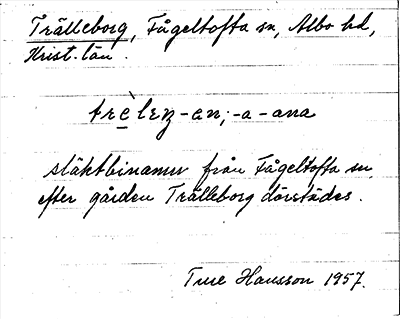 Trälleborg, Fågeltofta sn, Albo hd,
Krist. län.
trèlleŋ-an; -a -ana
släktbinamn från Fågeltofta sn,
efter gården Trälleborg därstädes.
Tue Hansson 1957.